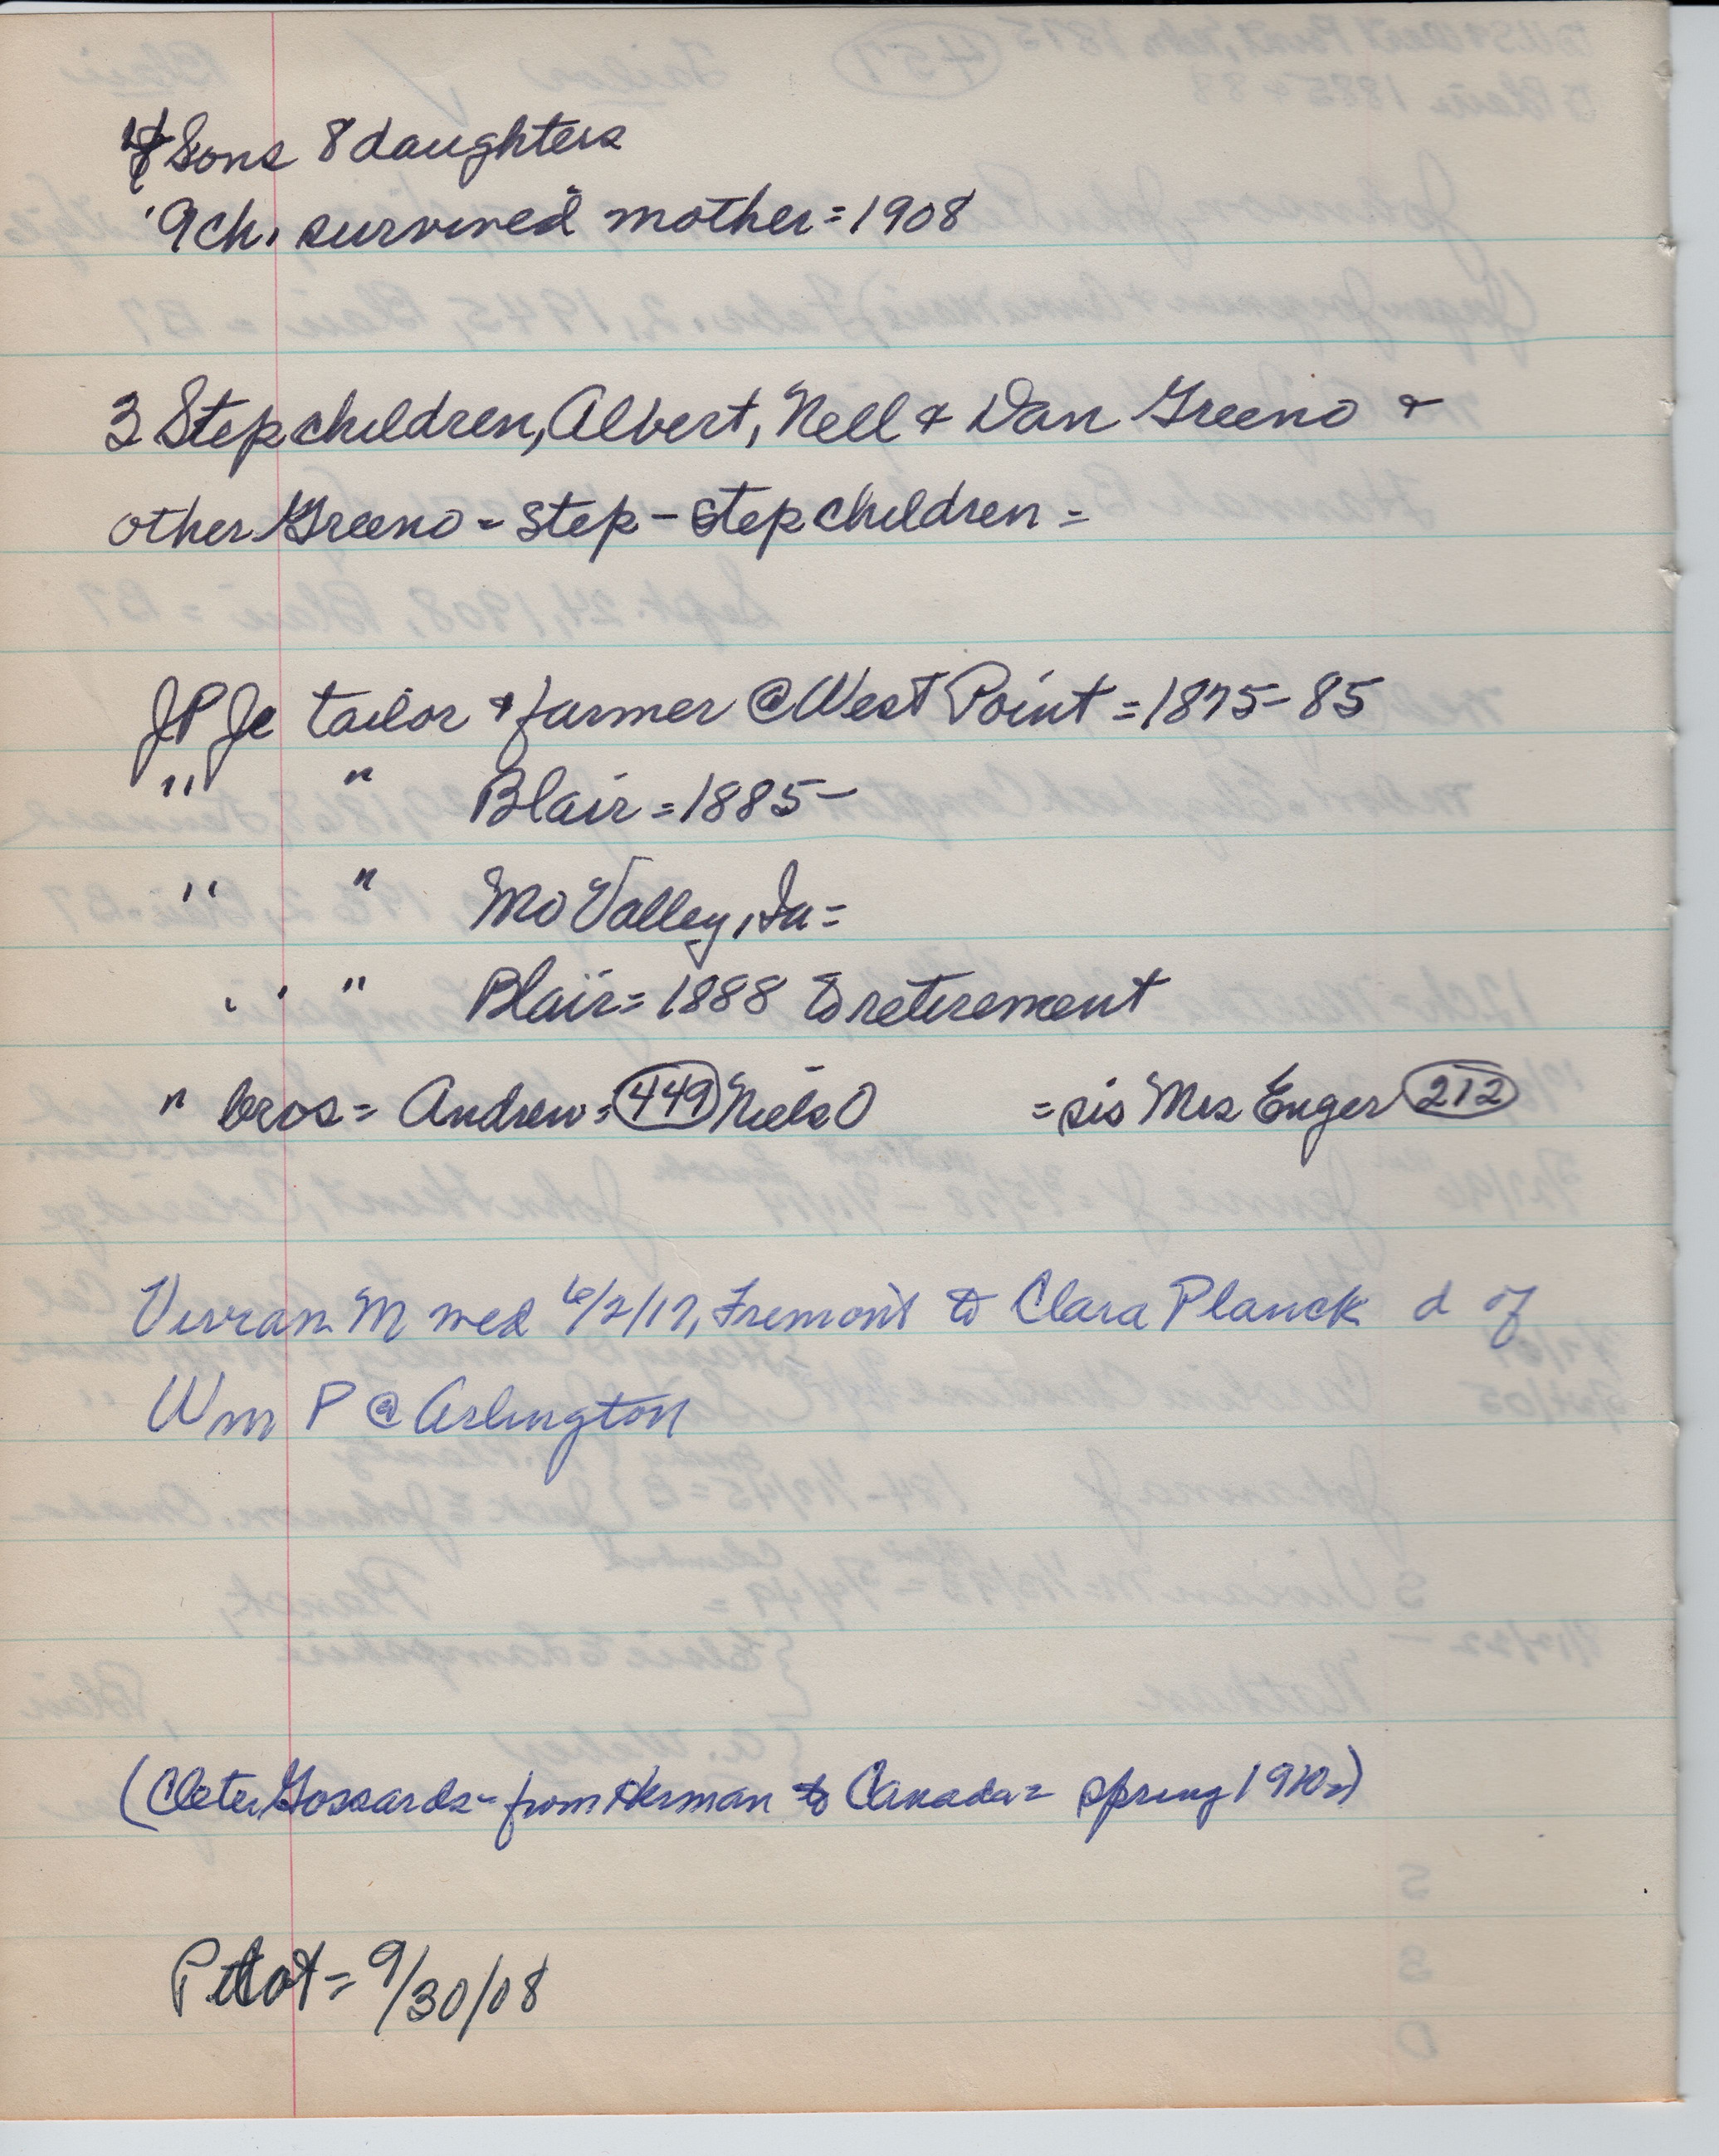 4 Sons 8 daughters
9 ch. survived mother = 1908
3 Stepchildren, Albert, Nell & Dan Greeno &
other Greeno = step-stepchildren =
JP Je tailor & farmer @ West Point = 1875-85
" " Blair = 1885-
" " Mo Valley, Ia =
" " Blair = 1888 to retirement
" bros = Andrew = 449 Niels O = sis Mrs Enger 212
Vivian M wed 6/2/17, Fremont to Clara Planck d of
Wm P @ Arlington
(Gossards - from Herman to Canada = spring 1910=)
= 9/30/08